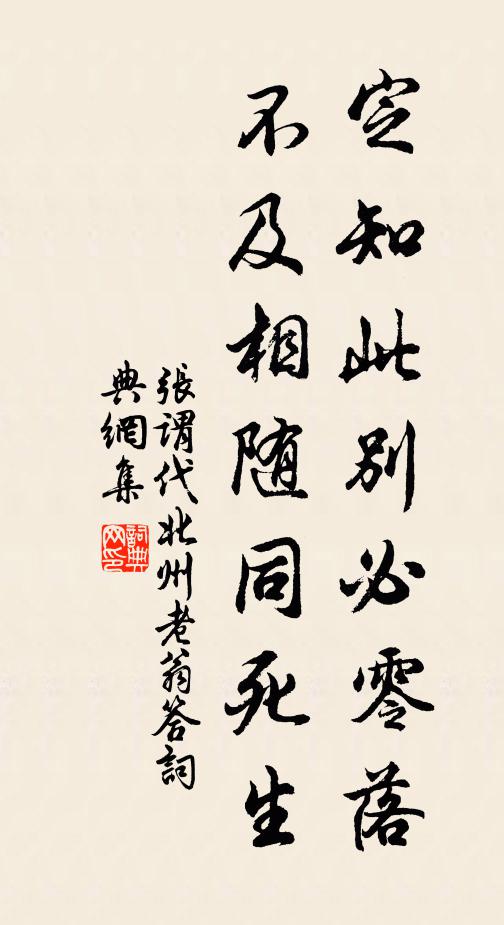 定知此別必零落
不及相随同死生
張謂代北州老翁答詞
典網集
詞典網印